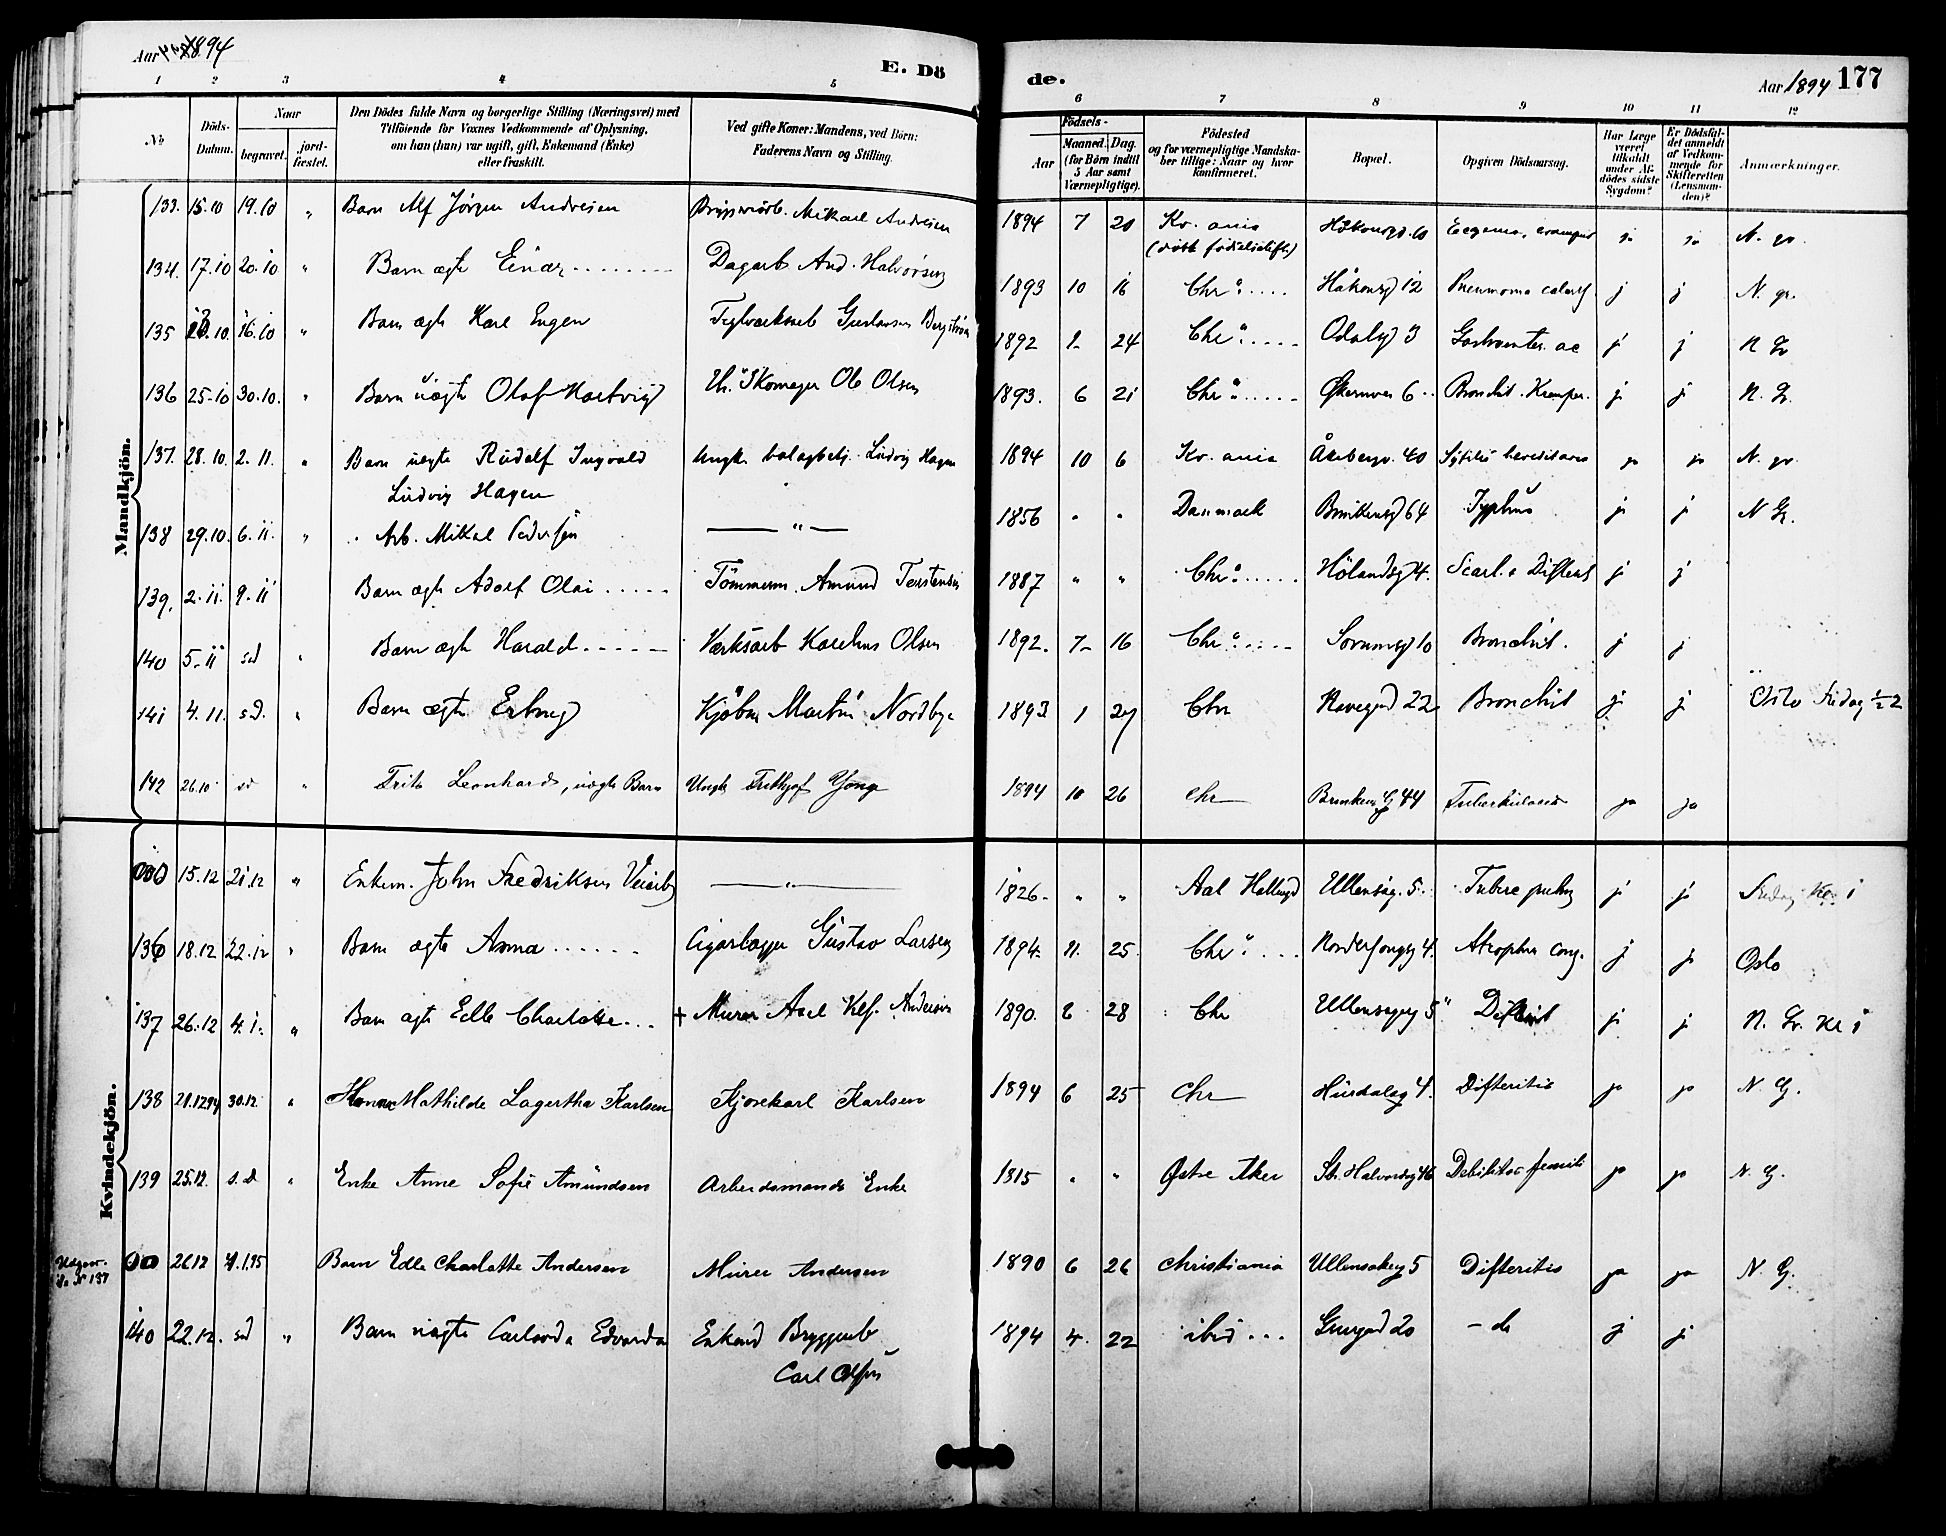 Aar 1894
E. Dö
de.
Aar 1894 177
1 2 3 4 5 6 7 8 9 10 11 12
No
Döds-
Datum.
Naar
begravet.
jord-
fæstet.
Den Dödes fulde Navn og borgerlige Stilling (Næringsvei) med
Tilföiende for Voxnes Vedkommende af Oplysning,
om han (hun) var ugift, gift, Enkemand (Enke)
eller fraskilt.
Ved gifte Koner: Mandens, ved Börn:
Faderens Navn og Stilling.
Födsels-
Aar
Maaned. Dag.
(for Börn indtil
5 Aar samt
Værnepligtige).
Födested
og for værnepligtige Mandska-
ber tillige: Naar og hvor
konfirmeret.
Bopæl.
Opgiven Dödsaarsag.
Har Læge
været
tilkaldt
under Af-
dödes sidste
Sygdom?
Er Dödsfal-
det anmeldt
af Vedkom-
mende for
Skifteretten
(Lensman-
den)?
Anmærkninger.
Mandkjön.
133. 15.10 19.10 " Barn Alf Jörgen Andresen Mikael Andresen 1894 7 20 Kr. ania Håkonsgd. 10 Eczema, ja ja N. gr.
134. 17.10 20.10 " Barn ægte Einar Dagarb. And. Halvorsen 1893 10 16 Chr a Håkonsgd 12 Pneumonia j j N. gr.
135 16.10 " Barn ægte Karl Eugen Teglværksarb Gustavsen Bergström 1892 24 Chr a Odalsgd 3 j j N Gr
136 25.10 30.10. " Barn uægte Olaf Hartvig Skomager Ole Olsen 1893. 6 21 Chr a Økernvei 6 Bronchit. Kramper. j j N. Gr.
137. 28.10. 2.11. " Barn uægte Rudolf Ingvald Ungk. Ludvig Hagen 1894 10 6 Kr. ania Åkebergv. 40 Syfilis hereditaria ja ja N. gr.
Ludvig Hagen
138 29.10. 6.11. " Arb. Mikal Pedersen — " — 1856 " " Danmark Brinkensgd 64 Typhus j j N Gr.
139. 2.11. 9.11 Barn ægte Adolf Olai Tömmerm. Amund Torstensen 1887 " " Chr a Hölandsgd 4. Scarl. & Difterit j j
140 5.11 sd " Barn ægte Harald Værksarb Karelius Olsen 1892. 7 16 Chr a Sorumsgd 10 Bronchit. j j
141 4.11. s.d. " Barn ægte Erling Kjöbm Martin Nordbye 1893 1 27 Chr Havegad 22 Bronchit j j Oslo Fredag ½2
142 26.10 sd " Frits Leonhard, uægte Barn Ungk. Frithjof Yong 1894 10 26 Chr Brinkens G 44 Tuberkulosis ja ja
Kvindekjön.
15.12 21.12 " Enkem. John Fredriksen — " — 1826. " " Aal Hallingd Ullensag. 5. j j Fredag Kl. 1
136 18.12 22.12 " Barn ægte Anna Cigarlægger Gustav Larsen 1894. 11. 25. Chr a 4. Atrophia cong. j j Oslo
137 26.12 4.1. " Barn ægte Edle Charlotte + Murer Axel Andersen 1890. 28 Chr Ullensagerg 5 Difterit j j N. Gr. Kl 1
138 21.12.94 30.12 " Hanna Mathilde Lagertha Karlsen Kjørekarl Karlsen 1894 6 25 Chr Hurdalsg 4. Difteritis ja ja N. G.
139 25.12. s.d " Enke Anne Sofie Amundsen Arbeidsmands Enke 1815 " " Østre Aker St. Halvordsg 46 Debilitas senilis ja ja N. G.
Udgaar.
se No 137
26.12 4.1.95 Barn Edle Charlotte Andersen Murer Andersen 1890 6 26 Christiania Ullensakerg 5 Difteritis ja ja N. G.
140 22.12. sd " Barn uægte Carlovda Edvarda Enkemd Bryggearb 1894 4. 22 ibid Grurgad 20 — do j j
Carl Olsen